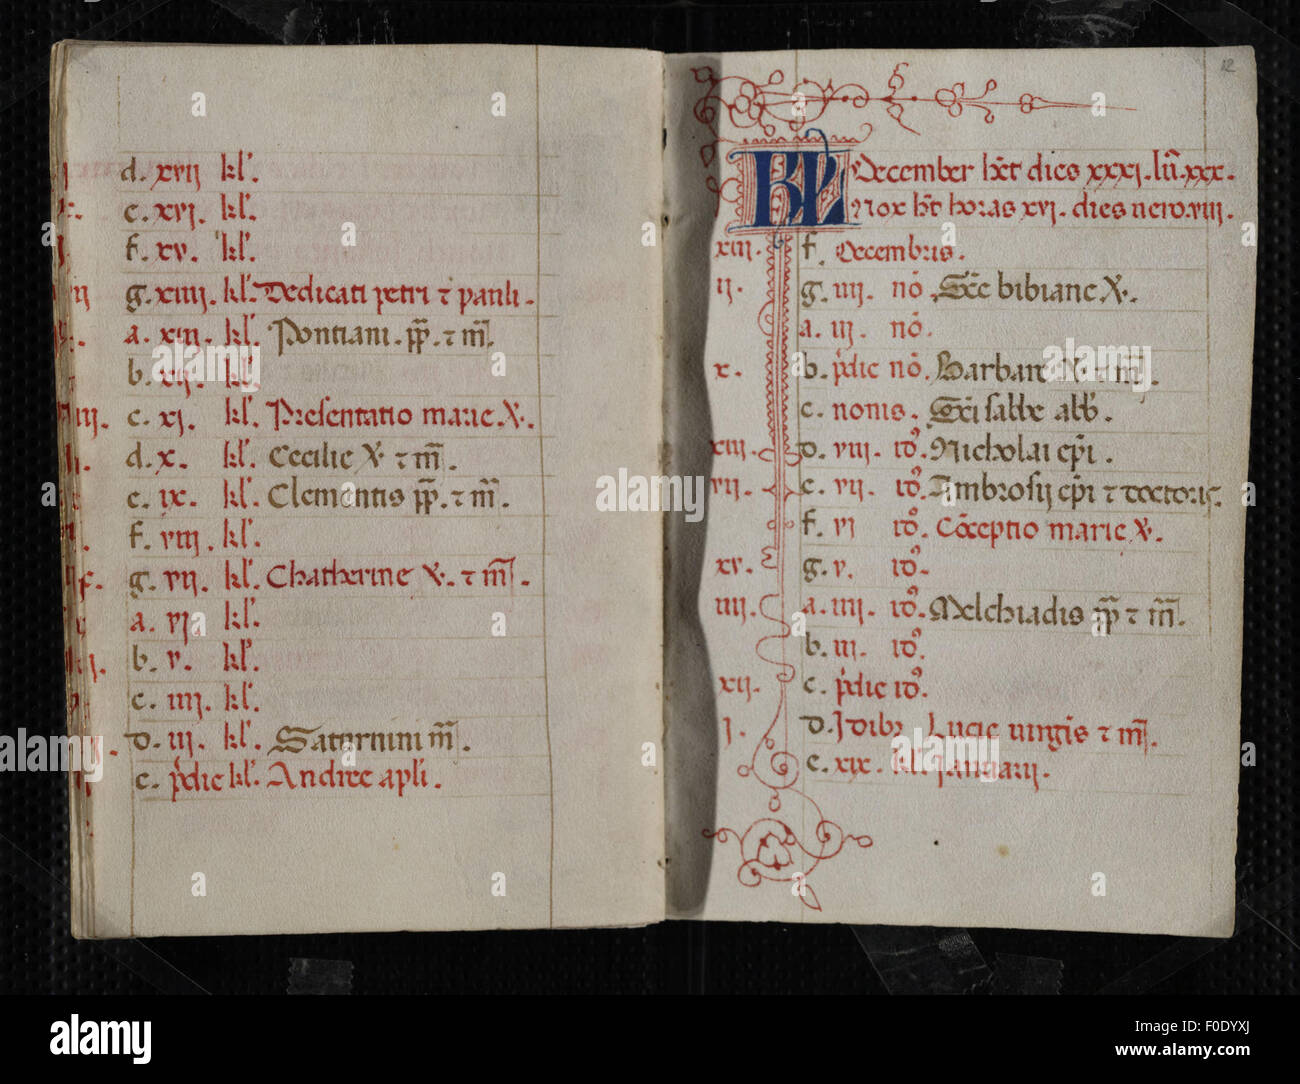 d. xvii kl'.
e. xvi. kl'.
f. xv. kl'.
g. xiiii. kl'. Dedicati petri ⁊ pauli.
a. xiii. kl'. Pontiani. pp̄. ⁊ m̄.
b. xii. kl'.
c. xi. kl'. Presentatio marie V̇.
d. x. kl'. Cecilie V̇ ⁊ m̄.
e. ix. kl'. Clementis pp̄. ⁊ m̄.
f. viii. kl'.
g. vii. kl'. Chatherine V̇. ⁊ m̄.
a. vi kl'.
b. v. kl'.
c. iiii. kl'.
d. iii. kl'. Saturnini m̄.
e. p'die kl'. Andree apl'i.
12
KL December h̄t dies xxxi. lu̅. xxx.
Nox h̄t horas xvi. dies uero. viii.
xiii. f. Decembris.
ii. g. iiii. nō. Sc̄e bibiane V̇.
a. iii. nō.
x. b. p'die nō. Barbare V̇ ⁊ m̄.
c. nonis. Sc̄i sabbe abb̄.
xviii. d. viii. idꝰ. Nicholai ep̄i.
vii. e. vii. idꝰ. Ambrosij ep̄i ⁊ doctoris.
f. vi idꝰ. Cōceptio marie V̇.
xv. g. v. idꝰ.
iiii. a. iiii. idꝰ. Melchiadis pp̄ ⁊ m̄.
b. iii. idꝰ.
xii. c. p'die idꝰ.
i. d. Idibꝰ Lucie uirgīs ⁊ m̄.
e. xix. kl'. Ianuarii.
alamy
Image ID: F0DYXJ
www.alamy.com